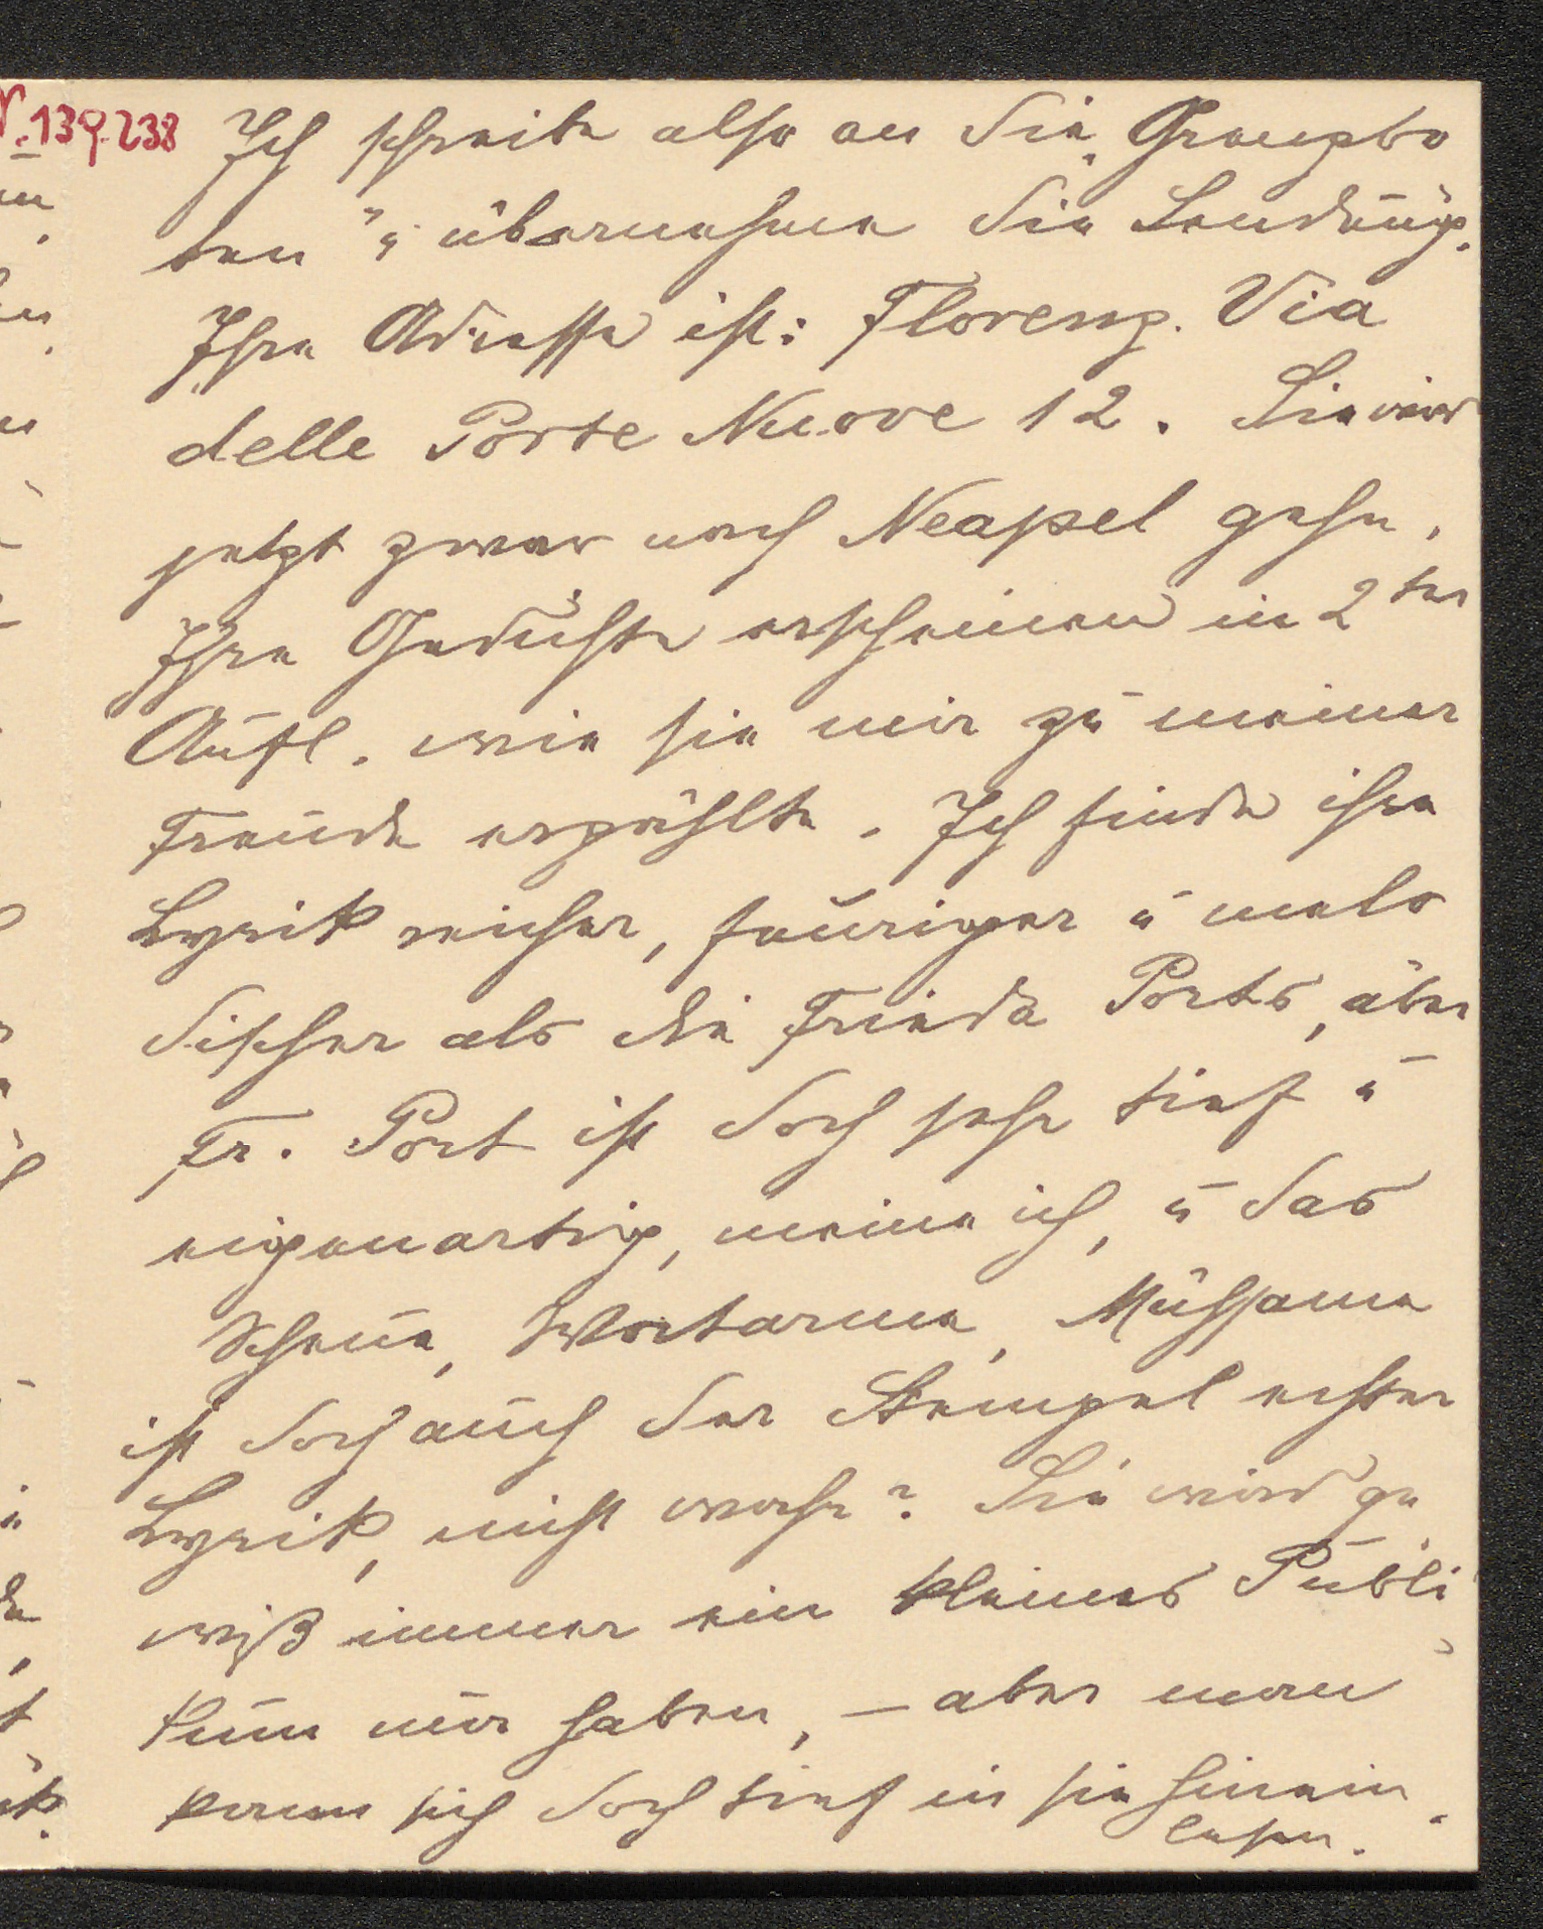 N. 139.238
Ich schreibe also an die „Grenzbo
ten" u übernehme die Sendung.
Ihre Adresse ist: Florenz. Via
delle Porte Nuove 12. Sie wird
jetzt zwar nach Neapel gehn.
Ihre Gedichte erscheinen in 2ter
Aufl. wie sie mir zu meiner
Freude erzählte. Ich finde ihre
Lyrik reicher, feuriger u melo
discher als die Frieda Ports, aber
Fr. Port ist doch sehr tief u
eigenartig, meine ich, u das
Scheue, Wortarme, Mühsame
ist doch auch der Stempel echter
Lyrik, nicht wahr? Sie wird ge
wiß immer ein kleines Publi
kum nur haben, – aber man
kann sich doch tief in sie hinein
lesen.